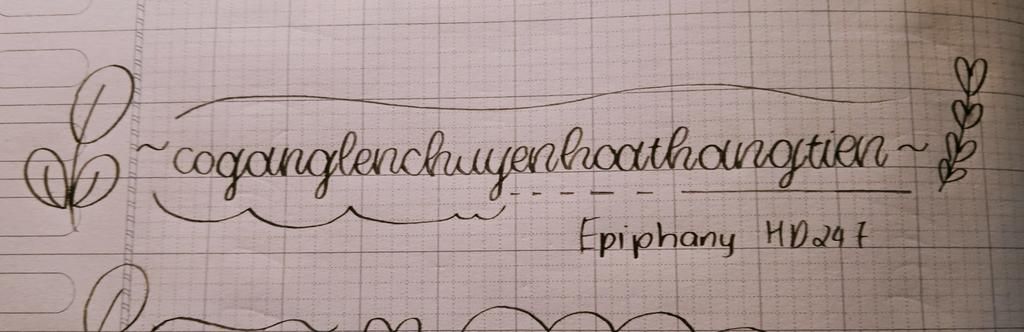 ~coganglenchuyenhoathangtien~
Epiphany HD247